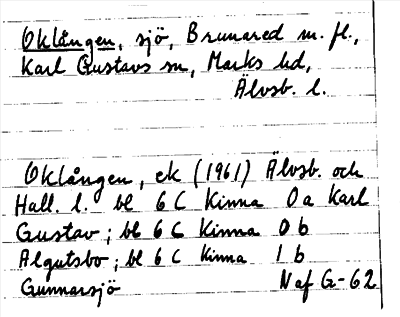 Oklången, sjö, Brunared m. fl.,
Karl Gustavs sn, Marks hd,
Älvsb. l.
Oklången, ek (1961) Älvsb. och
Hall. l. bl 6 C Kinna 0 a Karl
Gustav; bl 6 C Kinna 0 b
Älgutsbo; bl 6 C Kinna 1 b
Gunnarsjö Naf G-62